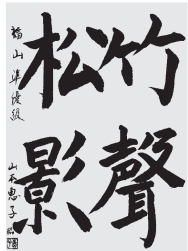 竹聲
松影
福山 準優級
山本惠子